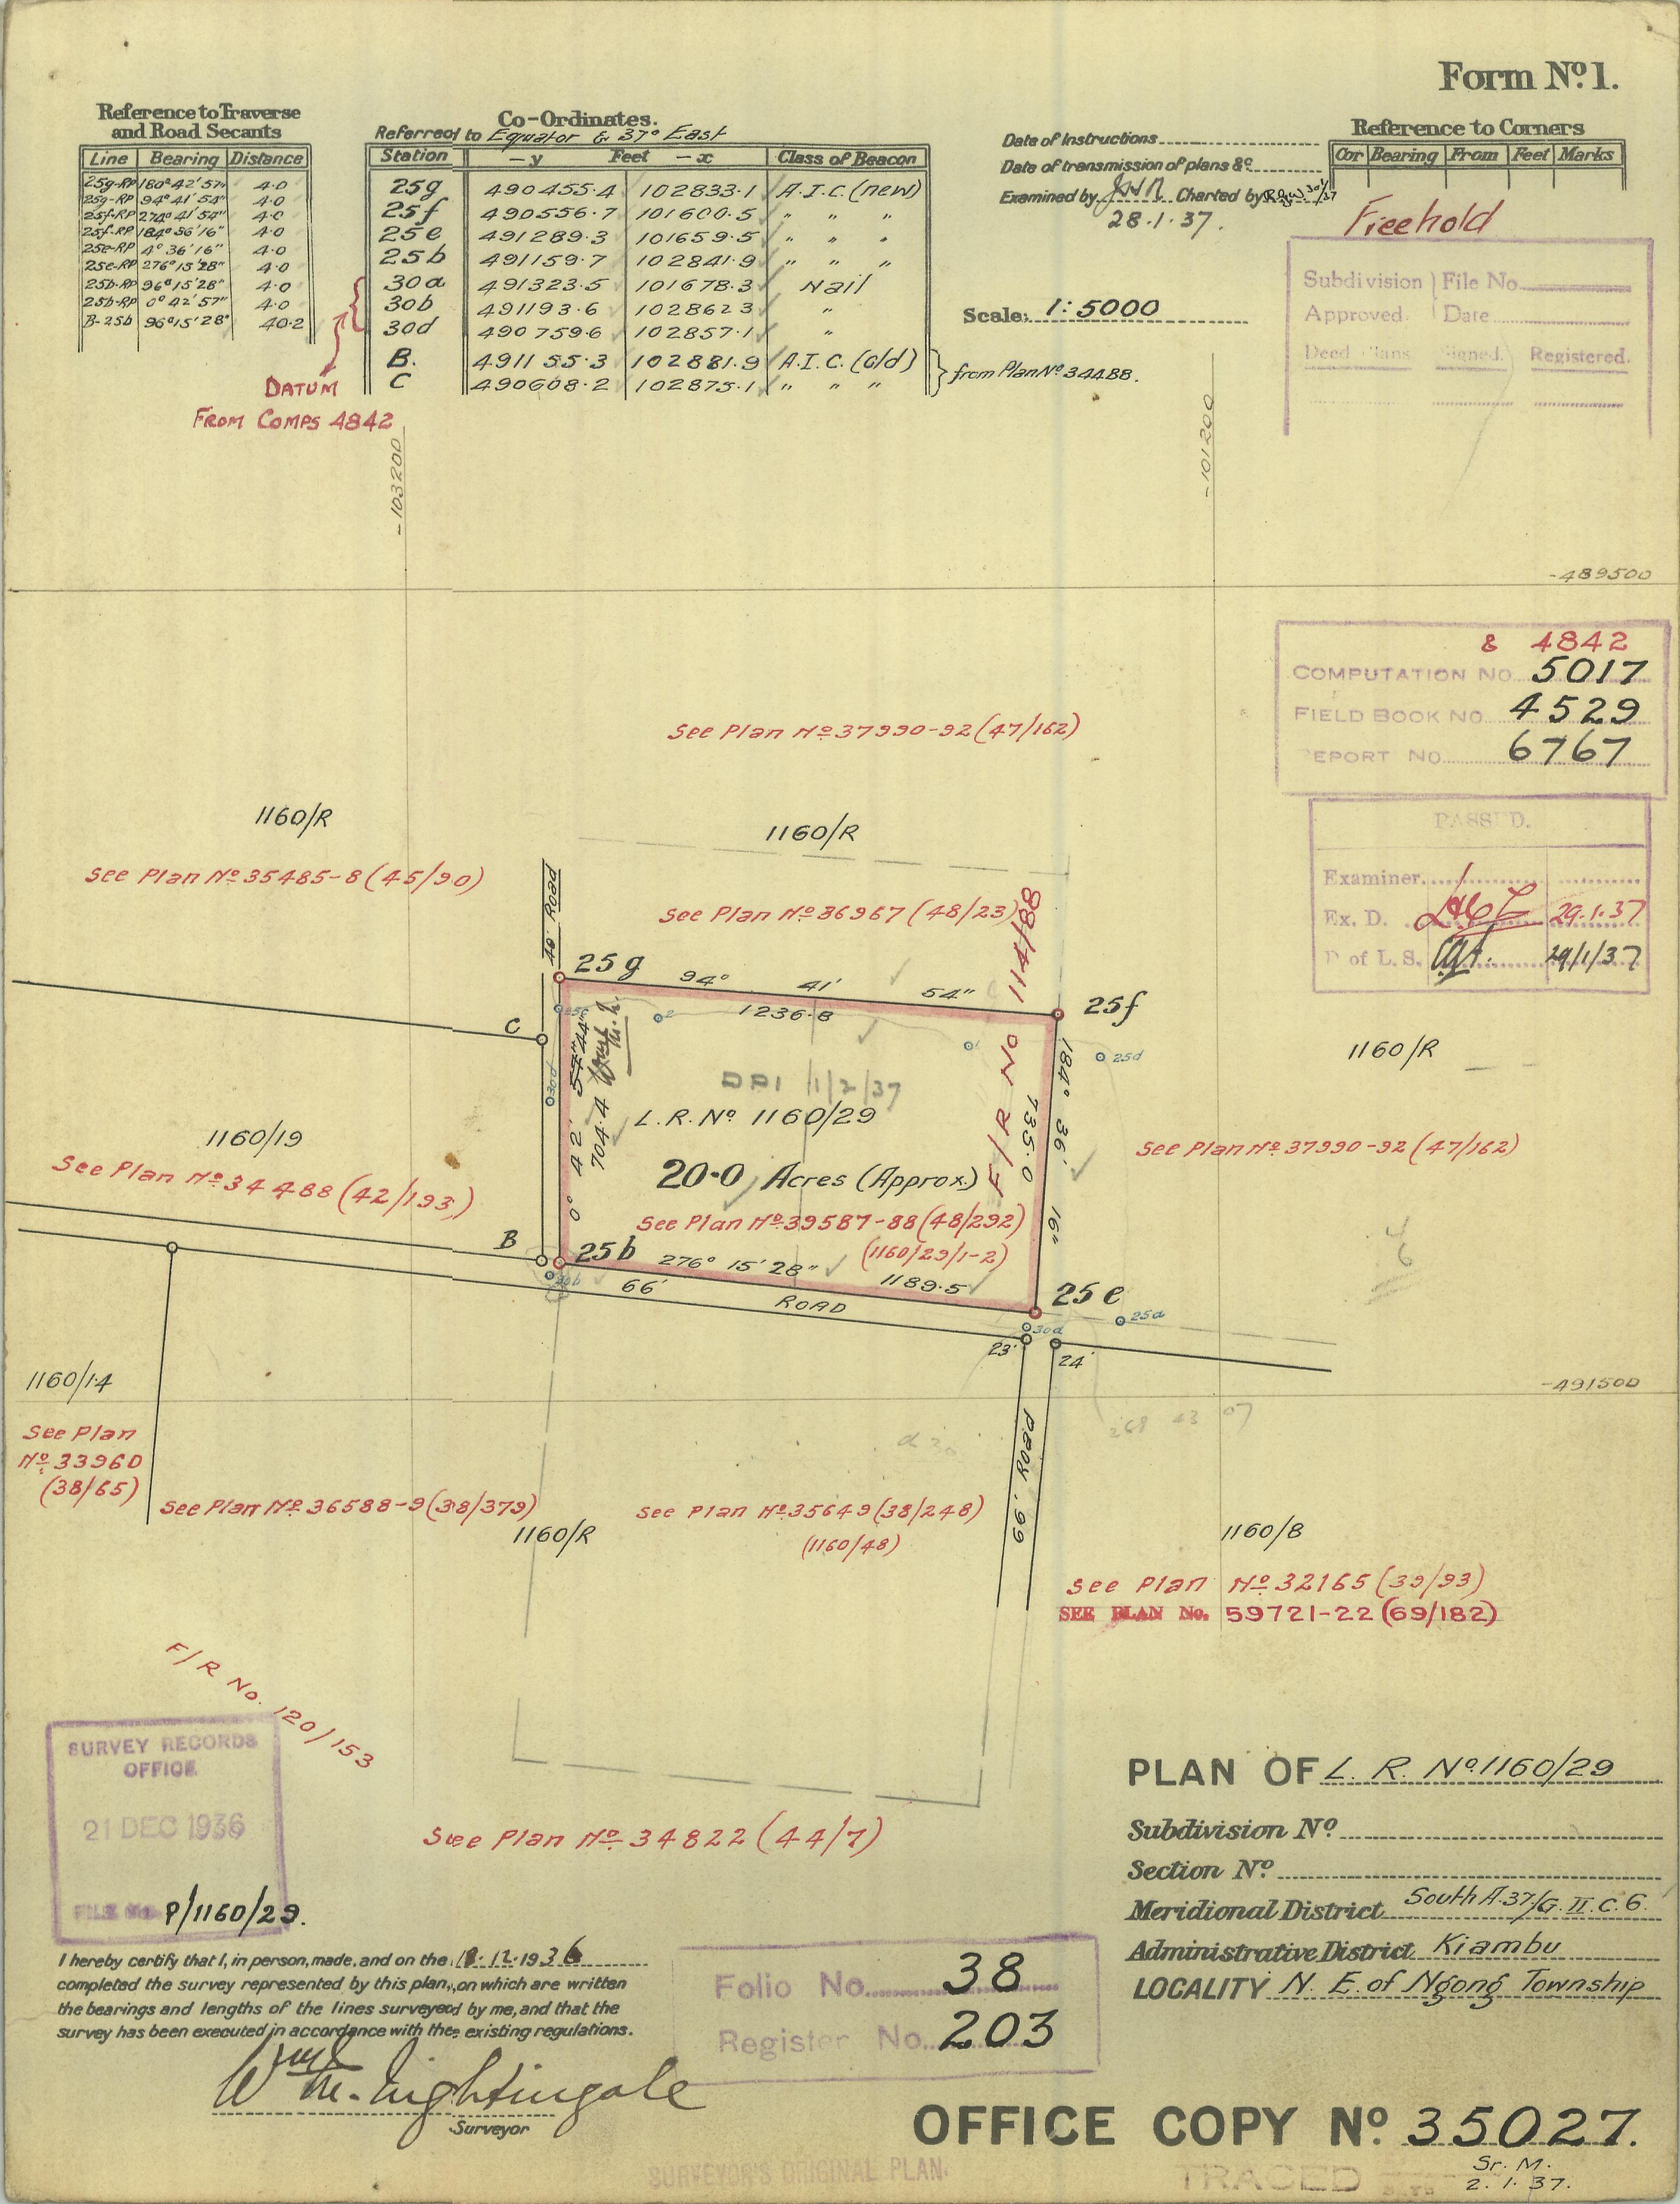 Form Nº 1.
Reference to Traverse
and Road Secants
Line Bearing Distance
25g-RP 180° 42' 57" 4.0
25g-RP 94° 41' 54" 4.0
25f-RP 274° 41' 54" 4.0
25f-RP 184° 36' 16" 4.0
25e-RP 4° 36' 16" 4.0
25e-RP 276° 15' 28" 4.0
25b-RP 96° 15' 28" 4.0
25b-RP 0° 42' 57" 4.0
B-25b 96° 15' 28" 40.2
DATUM
FROM COMPS 4842
Co-Ordinates.
Referred to Equator & 37° East
Station - y Feet - x Class of Beacon
25g 490455.4 102833.1 A.I.C. (new)
25f 490556.7 101600.5 " " "
25e 491289.3 101659.5 " " "
25b 491159.7 102841.9 " " "
30a 491323.5 101678.3 Nail
30b 491193.6 102862.3 "
30d 490759.6 102857.1 "
B. 491155.3 102881.9 A.I.C. (old)
C 490608.2 102875.1 " " "
from Plan Nº 34488.
Date of Instructions
Date of transmission of plans &c
Examined by Charted by
28.1.37.
Scale: 1:5000
Reference to Corners
Cor Bearing From Feet Marks
Freehold
Subdivision File No
Approved. Date
Deed Plans Signed. Registered.
-103200
-101200
-489500
& 4842
COMPUTATION NO. 5017
FIELD BOOK NO. 4529
REPORT NO. 6767
PASSED.
Examiner.
Ex. D. 29.1.37
D of L.S. 29/1/37
See Plan Nº 37990-92 (47/162)
1160/R
1160/R
See Plan Nº 35485-8 (45/90)
See Plan Nº 36967 (48/23)
40' ROAD
F/R No 114/88
25g
94° 41' 54"
1236.8
25f
25d
C
30d
0° 42' 57" 44"
704.4
DPI 1/2/37
L.R. Nº 1160/29
184° 36' 16"
735.0
1160/R
1160/19
See Plan Nº 34488 (42/193)
20.0 Acres (Approx.)
See Plan Nº 37990-92 (47/162)
See Plan Nº 39587-88 (48/292)
(1160/29/1-2)
B
25b
30b
276° 15' 28"
1189.5
66'
ROAD
25e
25a
30a
23'
24'
1160/14
-491500
See Plan
Nº 33960
(38/65)
268 43 07
66' ROAD
See Plan Nº 36588-9 (38/379)
1160/R
See Plan Nº 35649 (38/248)
(1160/48)
1160/8
See Plan Nº 32165 (39/93)
SEE PLAN No. 59721-22 (69/182)
F/R No. 120/153
SURVEY RECORDS
OFFICE
21 DEC 1936
FILE No. P/1160/29.
See Plan Nº 34822 (44/7)
PLAN OF L. R. Nº 1160/29
Subdivision Nº
Section Nº
Meridional District South A.37/G. II. C. 6.
Administrative District Kiambu
LOCALITY N. E. of Ngong Township
I hereby certify that I, in person, made, and on the 18.12.1936
completed the survey represented by this plan, on which are written
the bearings and lengths of the lines surveyed by me, and that the
survey has been executed in accordance with the existing regulations.
Wm. M. Nightingale
Surveyor
Folio No. 38
Register No. 203
OFFICE COPY Nº 35027.
Sr. M.
2.1.37.
SURVEYOR'S ORIGINAL PLAN.
TRACED